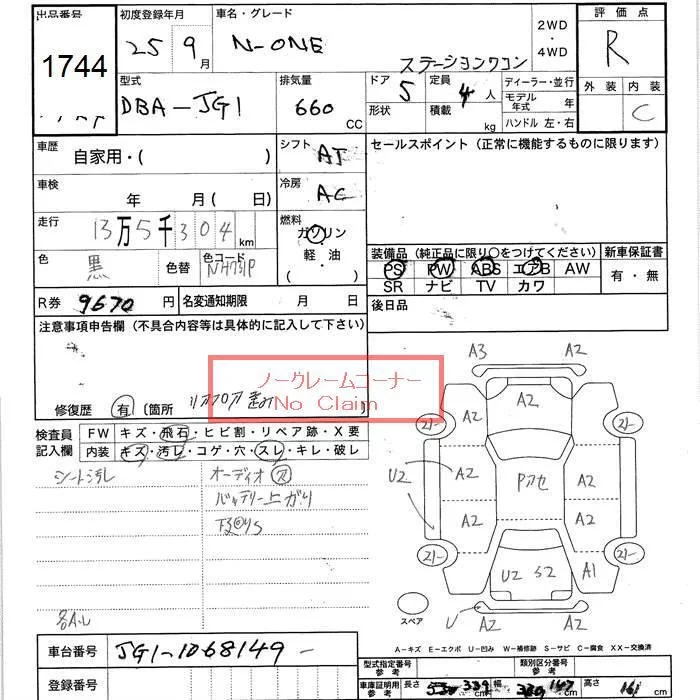 出品番号
1744
初度登録年月
25 9 月
車名・グレード
N-ONE
ステーションワゴン
2WD
・
4WD
評価点
R
外装 内装
C
型式
DBA-JG1
排気量
660 CC
ドア 5
形状
定員 4 人
積載 kg
ディーラー・並行
モデル年式 年
ハンドル 左・右
車歴 自家用・( )
シフト AT
セールスポイント（正常に機能するものに限ります）
車検 年 月( 日)
冷房 AC
走行 13万5千304 km
燃料
ガソリン
・
軽・油
( )
色 黒 色替 色コード NH731P
装備品（純正品に限り○をつけてください）
新車保証書
PS PW ABS エアB AW
SR ナビ TV カワ
有・無
R券 9670 円
名変通知期限 月 日
後日品
注意事項申告欄（不具合内容等は具体的に記入して下さい）
ノークレームコーナー
No Claim
修復歴 有 〔箇所 リアフロア
検査員記入欄
FW キズ・飛石・ヒビ割・リペア跡・X要
内装 キズ・汚レ・コゲ・穴・スレ・キレ・破レ
シート汚れ
オーディオ穴
バッテリー上がり
各A-L
A3 A2
A2
21- 21-
A2 A2
U2 A2 Pガセ A2
A2 A2
21- 21-
U2 S2 A1
U A2 A2
スペア
A-キズ E-エクボ U-凹み W-補修跡 S-サビ C-腐食 XX-交換済
車台番号 JG1-1068149-
登録番号
型式指定番号
参考
類別区分番号
参考
車庫証明用
参考
長さ 339 cm
幅 147 cm
高さ 161 cm